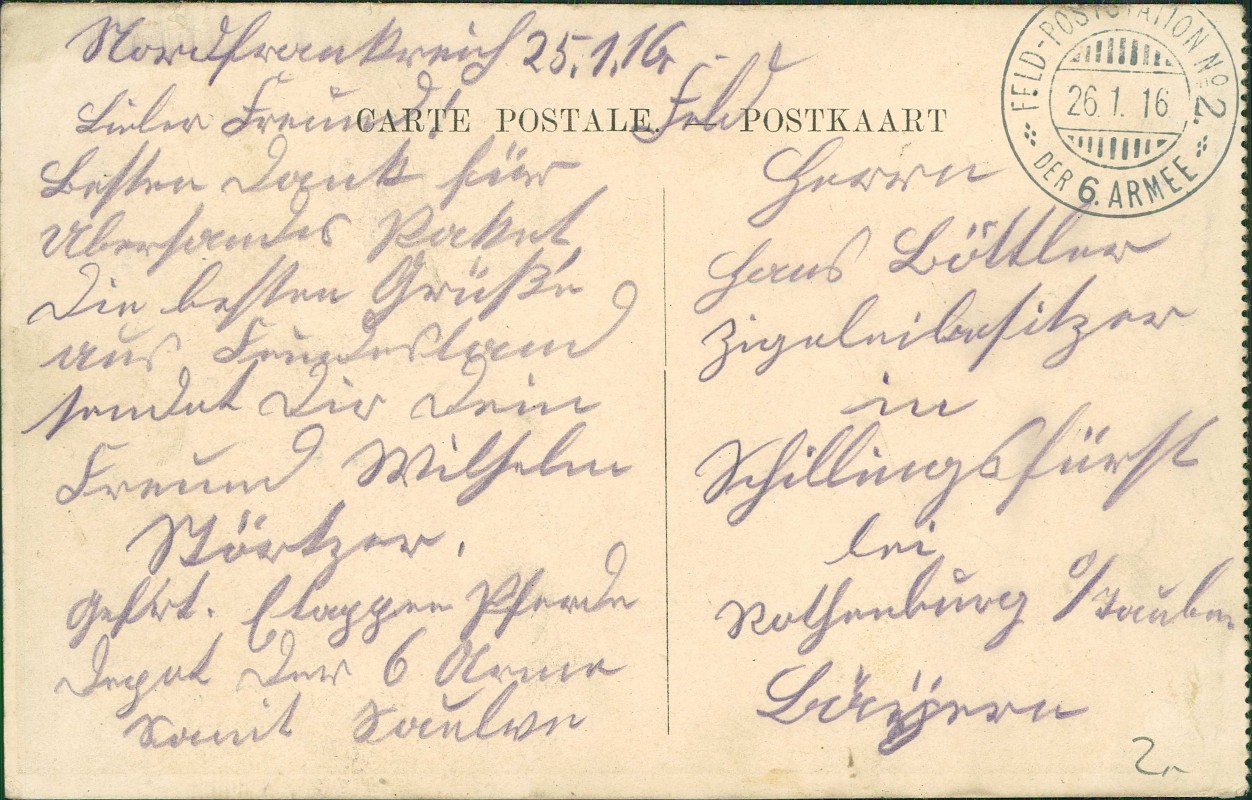 Nordfrankreich 25.1.16.
Lieber Freund!
Besten Dank für
Übersandes Paket,
Die besten Grüße
aus Feindesland
sendet Dir Dein
Freund Wilhelm
Störtzer.
Gefrt. Etappen Pferde
Depot der 6 Arme
Saulve
CARTE POSTALE. — POSTKAART
Feld
FELD-POSTSTATION No 2.
26.1.16
DER 6. ARMEE
Herrn
Hans Böttler
Zigeleibesitzer
in
Schillingsfürst
bei
Rothenburg o/Tauber
Bayern
2.